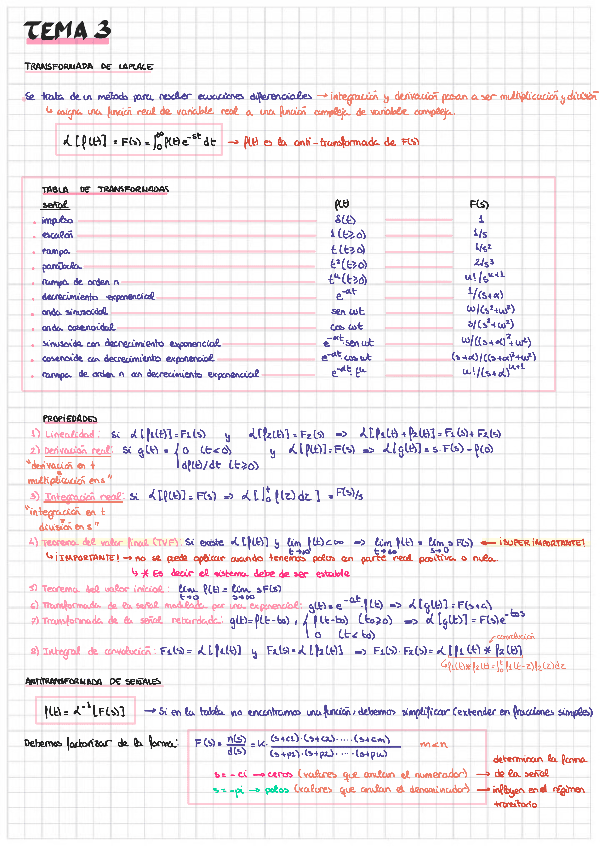 TEMA 3
TRANSFORMADA DE LAPLACE
Se trata de un método para resolver ecuaciones diferenciales → integración y derivación pasan a ser multiplicación y división
↳ asigna una función real de variable real a una función compleja de variable compleja.
ℒ[f(t)] = F(s) = ∫₀^∞ f(t) e^-st dt → f(t) es la anti-transformada de F(s)
TABLA DE TRANSFORMADAS
señal f(t) F(s)
impulso δ(t) 1
escalón 1(t≥0) 1/s
rampa t(t≥0) 1/s²
parábola t²(t≥0) 2/s³
rampa de orden n tⁿ(t≥0) n!/sⁿ⁺¹
decrecimiento exponencial e^-αt 1/(s+α)
onda sinusoidal sen ωt ω/(s²+ω²)
onda cosenoidal cos ωt s/(s²+ω²)
sinusoide con decrecimiento exponencial e^-αt sen ωt ω/((s+α)²+ω²)
cosenoide con decrecimiento exponencial e^-αt cos ωt (s+α)/((s+α)²+ω²)
rampa de orden n con decrecimiento exponencial e^-αt tⁿ n!/(s+α)ⁿ⁺¹
PROPIEDADES
1) Linealidad: Si ℒ[f1(t)]=F1(s) y ℒ[f2(t)]=F2(s) ⇒ ℒ[f1(t)+f2(t)]=F1(s)+F2(s)
2) Derivación real: Si g(t)= { 0 (t<0) y ℒ[f(t)]=F(s) ⇒ ℒ[g(t)]=s·F(s)-f(0)
"derivación en t df(t)/dt (t≥0)
multiplicación en s"
3) Integración real: Si ℒ[f(t)]=F(s) ⇒ ℒ[∫₀ᵗ f(z)dz] = F(s)/s
"integración en t
división en s"
4) Teorema del valor final (TVF): Si existe ℒ[f(t)] y lim t→∞ f(t)<∞ ⇒ lim t→∞ f(t) = lim s→0 s F(s) ← ¡SUPER IMPORTANTE!
↳ ¡IMPORTANTE! → no se puede aplicar cuando tenemos polos en parte real positiva o nula.
↳ * Es decir el sistema debe de ser estable
5) Teorema del valor inicial: lim t→0 f(t) = lim s→∞ sF(s)
6) Transformada de la señal modulada por una exponencial: g(t)=e^-at·f(t) ⇒ ℒ[g(t)]=F(s+a)
7) Transformada de la señal retardada: g(t)=f(t-to), { f(t-to) (to≥0) ⇒ ℒ[g(t)]=F(s)e^-tos
0 (t<to)
convolución
8) Integral de convolución: F1(s)=ℒ[f1(t)] y F2(s)=ℒ[f2(t)] ⇒ F1(s)·F2(s)=ℒ[f1(t) * f2(t)]
↳ f1(t)*f2(t)=∫₀ᵗ f1(t-z)f2(z)dz
ANTITRANSFORMADA DE SEÑALES
f(t) = ℒ⁻¹[F(s)] → Si en la tabla no encontramos una función, debemos simplificar (extender en fracciones simples)
Debemos factorizar de la forma: F(s) = n(s)/d(s) = K · (s+c1)·(s+c2)·....·(s+cm) / (s+p1)·(s+p2)·....·(s+pn) m<n
s=-ci → ceros (valores que anulan el numerador) → determinan la forma de la señal
s=-pi → polos (valores que anulan el denominador) → influyen en el régimen transitorio